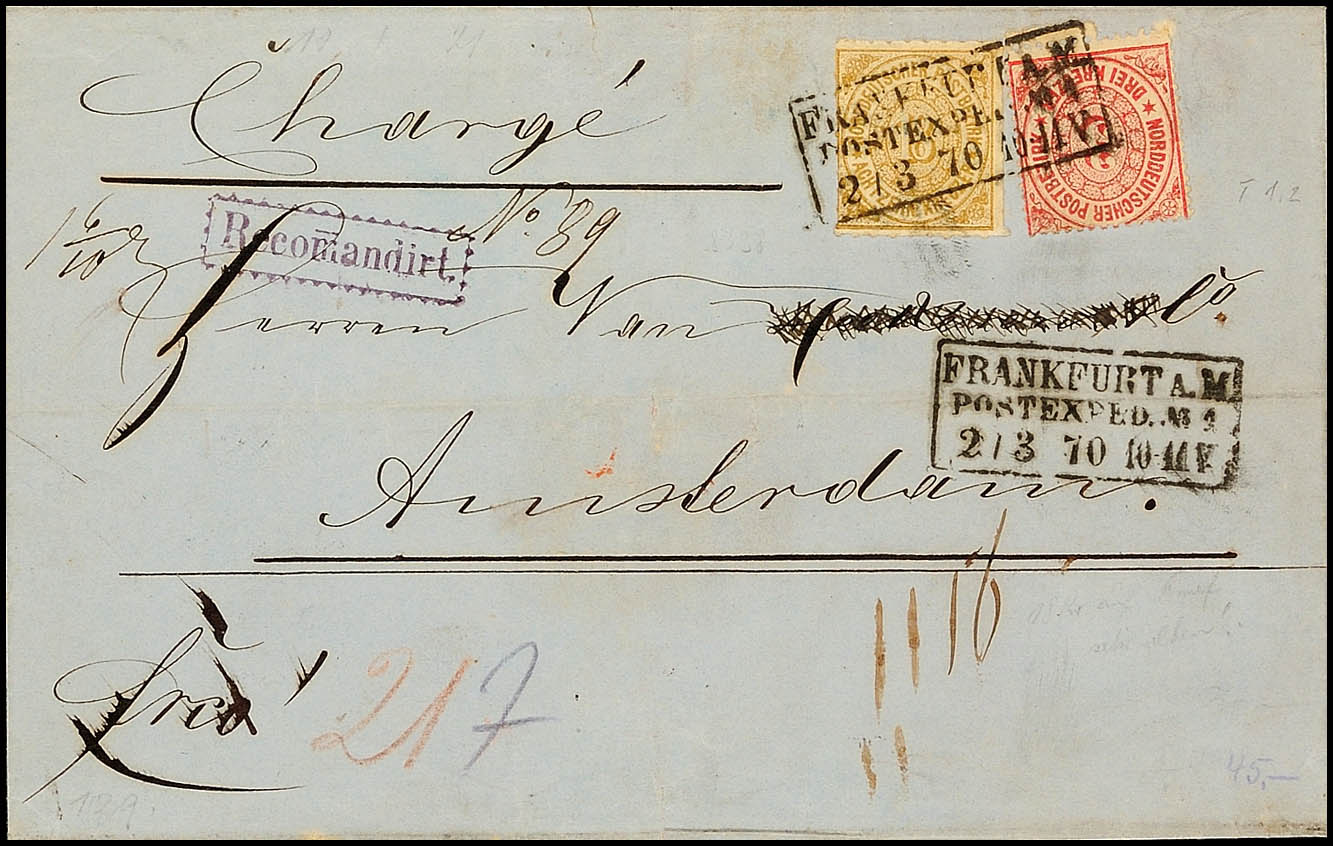 Chargé
No. 89
1 6/10
Recomandirt.
Herren Van Co.
Amsterdam.
Frco
217
16
FRANKFURT A.M.
POSTEXPED. No 1
2 / 3 70 10-11 V
FRANKFURT A.M.
POSTEXPED. No 1
2 / 3 70 10-11 V
NORDDEUTSCHER POSTBEZIRK
DREI KREUZER
T 1,2
45,—